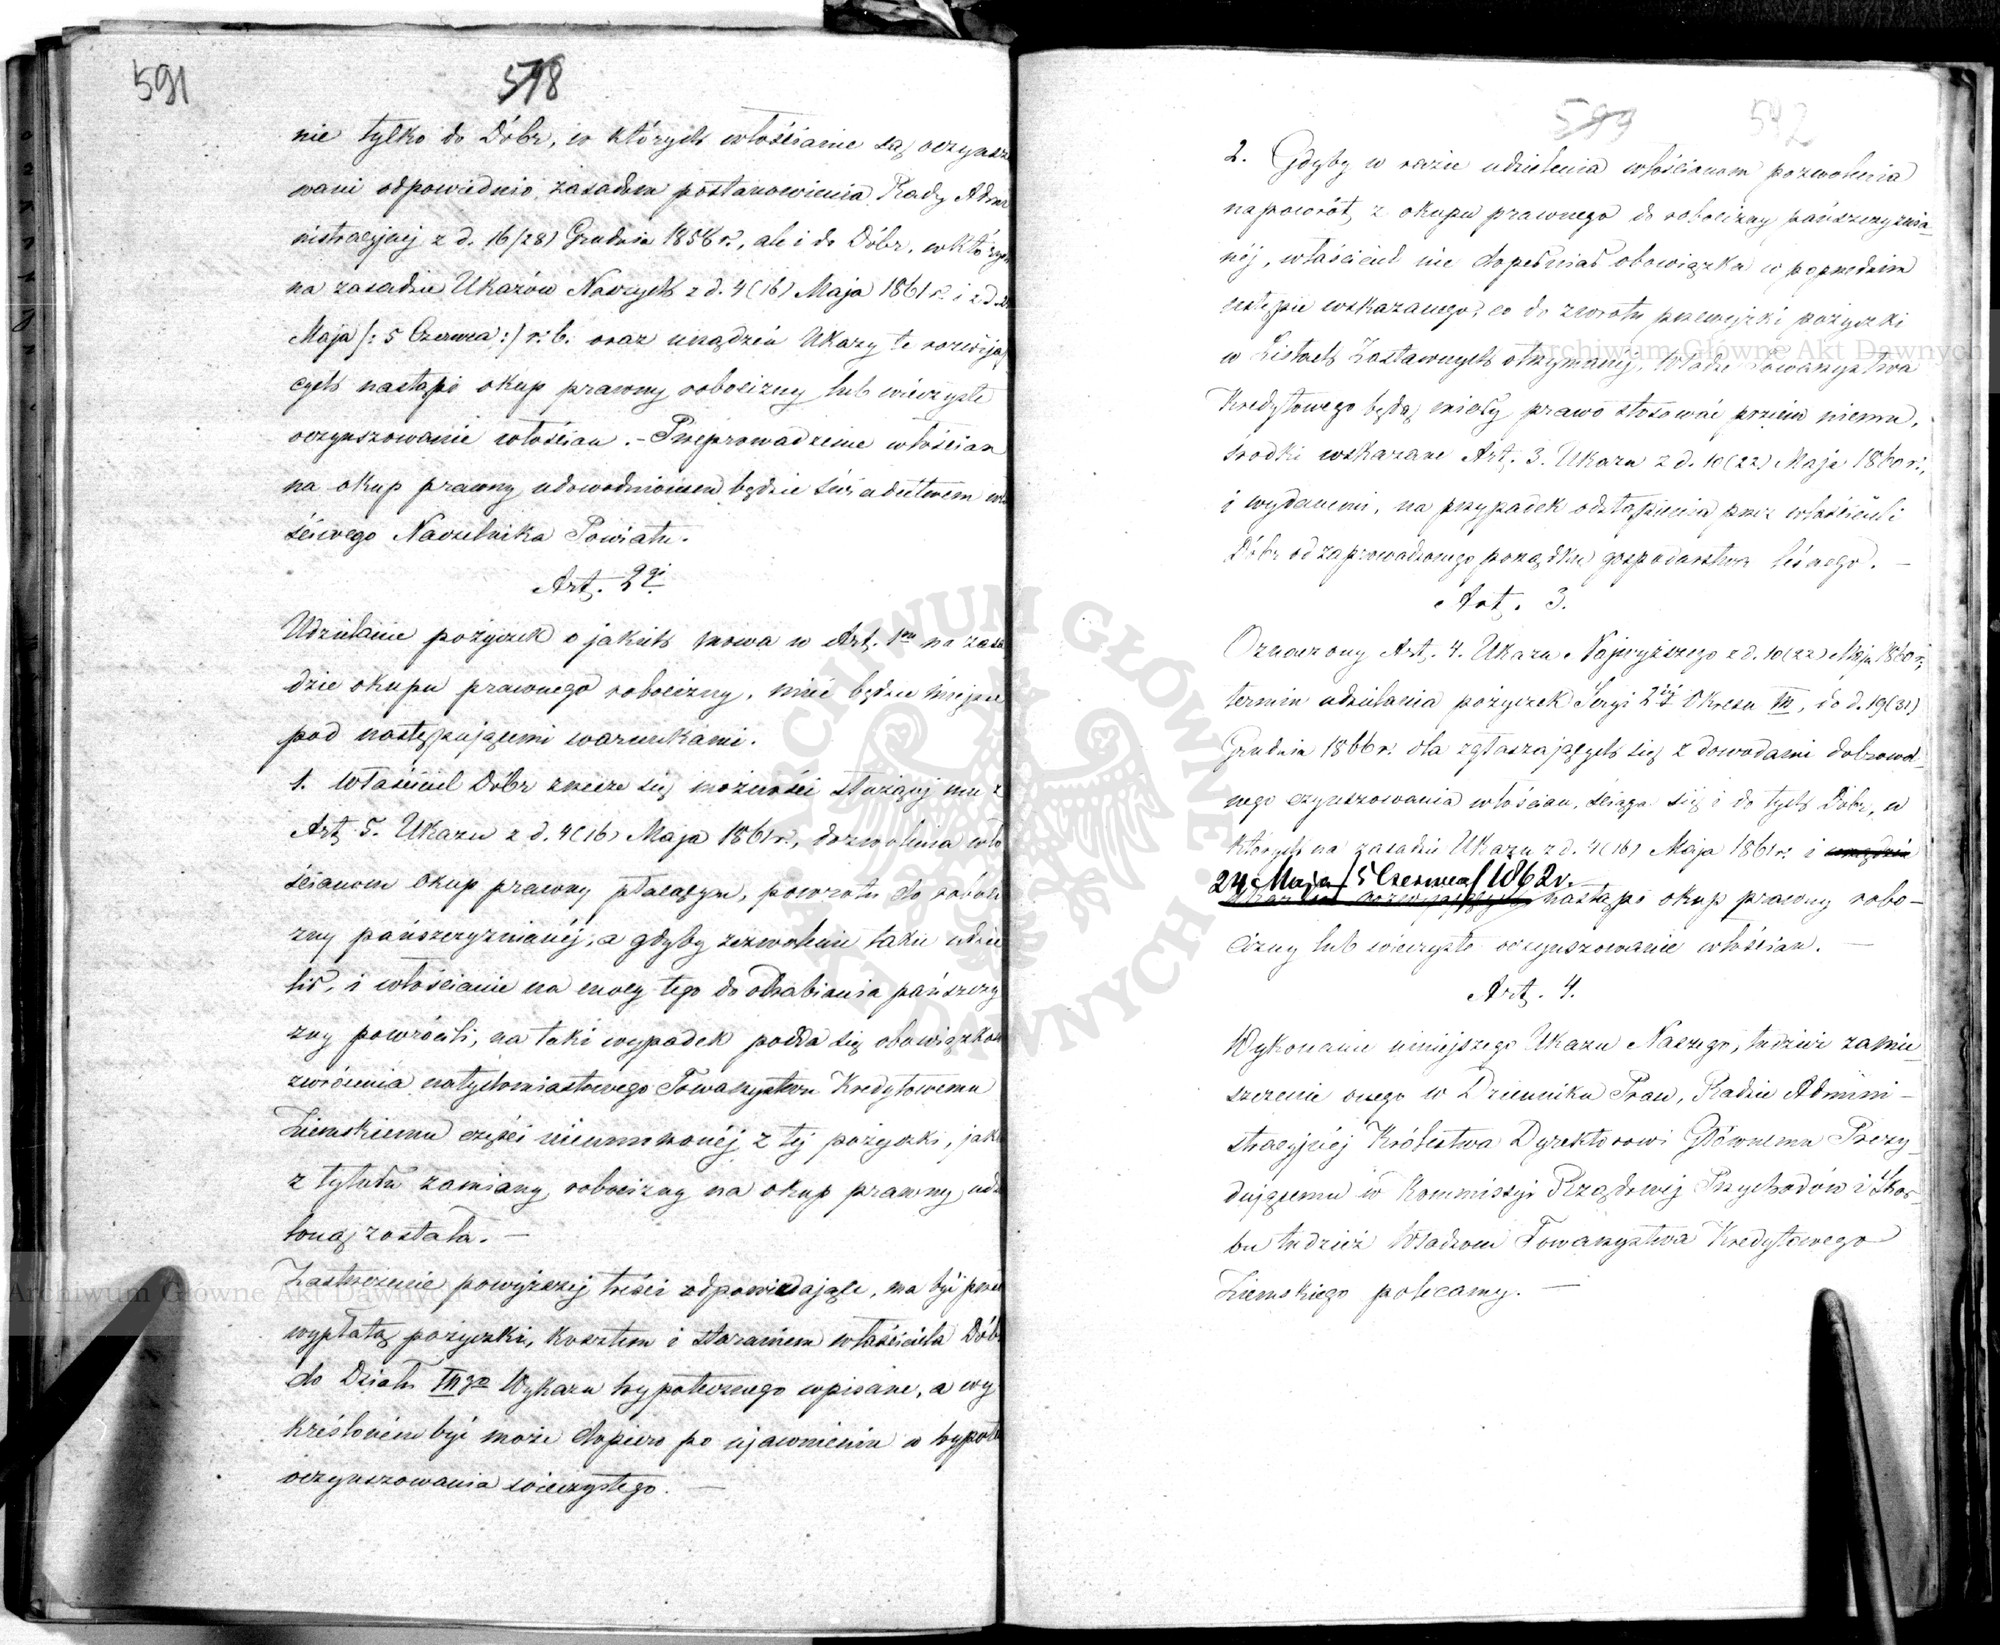 591
578
nie tylko do Dóbr, w których włościanie są oczynszo
wani odpowiednio zasadom postanowienia Rady Admi
nistracyjnej z d. 16/28) Grudnia 1858 r., ale i do Dóbr, w których
na zasadzie Ukazów Naszych z d. 4 (16) Maja 1861 r. i z d. 24
Maja /: 5 Czerwca :/ r. b. oraz urządzeń Ukazy te rozwijają
cych nastąpi okup prawny robocizny lub wieczyste
oczynszowanie włościan. – Przeprowadzenie włościan
na okup prawny udowodnionem będzie świadectwem wła
ściwego Naczelnika Powiatu.
Art. 2gi
Udzielanie pożyczek o jakich mowa w Art. 1m na zasa
dzie okupu prawnego robocizny, mieć będzie miejsce
pod następującemi warunkami.
1. Właściciel Dóbr zrzecze się możności służącej mu z
Art. 5. Ukazu z d. 4 (16) Maja 1861 r., dozwolenia wło
ścianom okup prawny płacącym, powrotu do roboci
zny pańszczyznianéj, a gdyby zezwolenie takie udzie
lił, i włościanie na mocy tego do odrabiania pańszczy
zny powrócili, na taki wypadek podda się obowiązkowi
zwrócenia natychmiastowego Towarzystwu Kredytowemu
Ziemskiemu części nieumorzonéj z tej pożyczki, jaka
z tytułu zamiany robocizny na okup prawny udzie
loną została. —
Zastrzeżenie powyższej treści odpowiadające, ma być przed
wypłatą pożyczki, kosztem i staraniem właściciela Dóbr
do Działu IIIgo Wykazu hypotecznego wpisane, a wy
kreśloném być może dopiero po ujawnieniu w hypotece
oczynszowania wieczystego. —
599 592
2. Gdyby w razie udzielenia włościanom pozwolenia
na powrót z okupu prawnego do robocizny pańszczyznia-
néj, właściciel nie dopełniał obowiązku w poprzednim
ustępie wskazanego, co do zwrotu przewyżki pożyczki
w Listach Zastawnych otrzymanéj, Władze Towarzystwa
Kredytowego będą miały prawo stosować przeciw niemu,
środki wskazane Art. 3. Ukazu z d. 10 (22) Maja 1860 r.,
i wydanemi, na przypadek odstąpienia przez właścicieli
Dóbr od zaprowadzonego porządku gospodarstwa leśnego. —
Art. 3.
Oznaczony Art. 4. Ukazu Najwyższego z d. 10 (22) Maja 1860 r.,
termin udzielania pożyczek Seryi 2éj Okresu III, do d. 19 (31)
Grudnia 1866 r. dla zgłaszających się z dowodami dobrowol-
nego czynszowania włościan, ściąga się i do tych Dóbr, w
których na zasadzie Ukazu z d. 4 (16) Maja 1861 r. i urządzeń
24 Maja / 5 Czerwca / 1862 r.
Ukaz ten rozwijających nastąpi okup prawny robo-
cizny lub wieczyste oczynszowanie włościan. —
Art. 4.
Wykonanie niniejszego Ukazu Naszego, tudzież zamie
szczenie onego w Dzienniku Praw, Radzie Admini-
stracyjnéj Królestwa Dyrektorowi Głównemu Prezy-
dującemu w Kommissyi Rządowéj Przychodów i Skar-
bu tudzież Władzom Towarzystwa Kredytowego
Ziemskiego polecamy. —
Archiwum Główne Akt Dawnych
Archiwum Główne Akt Dawnych
ARCHIWUM GŁÓWNE AKT DAWNYCH